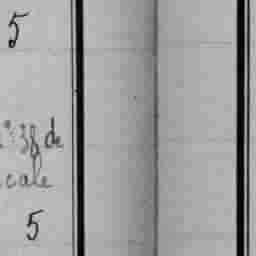 5
n°: 38 de
cale
5